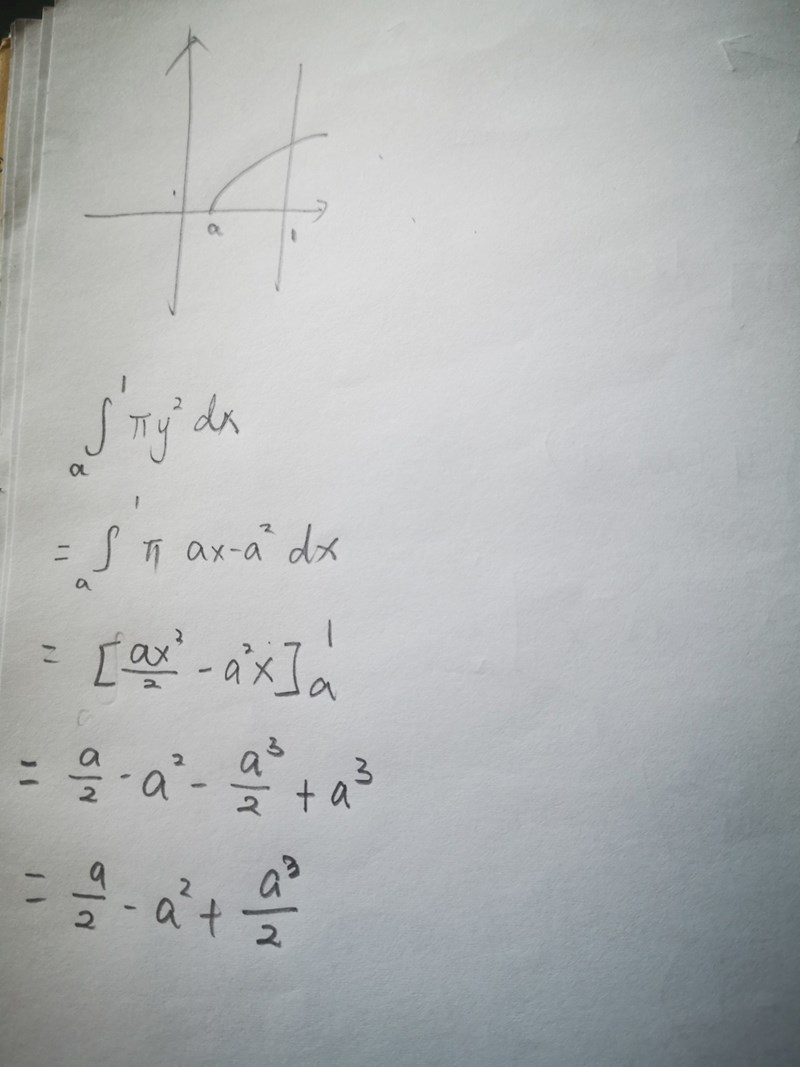 a
1
∫ₐ¹ πy² dx
= ∫ₐ¹ π ax-a² dx
= [ax³/2 - a²x]ₐ¹
= a/2 - a² - a³/2 + a³
= a/2 - a² + a³/2